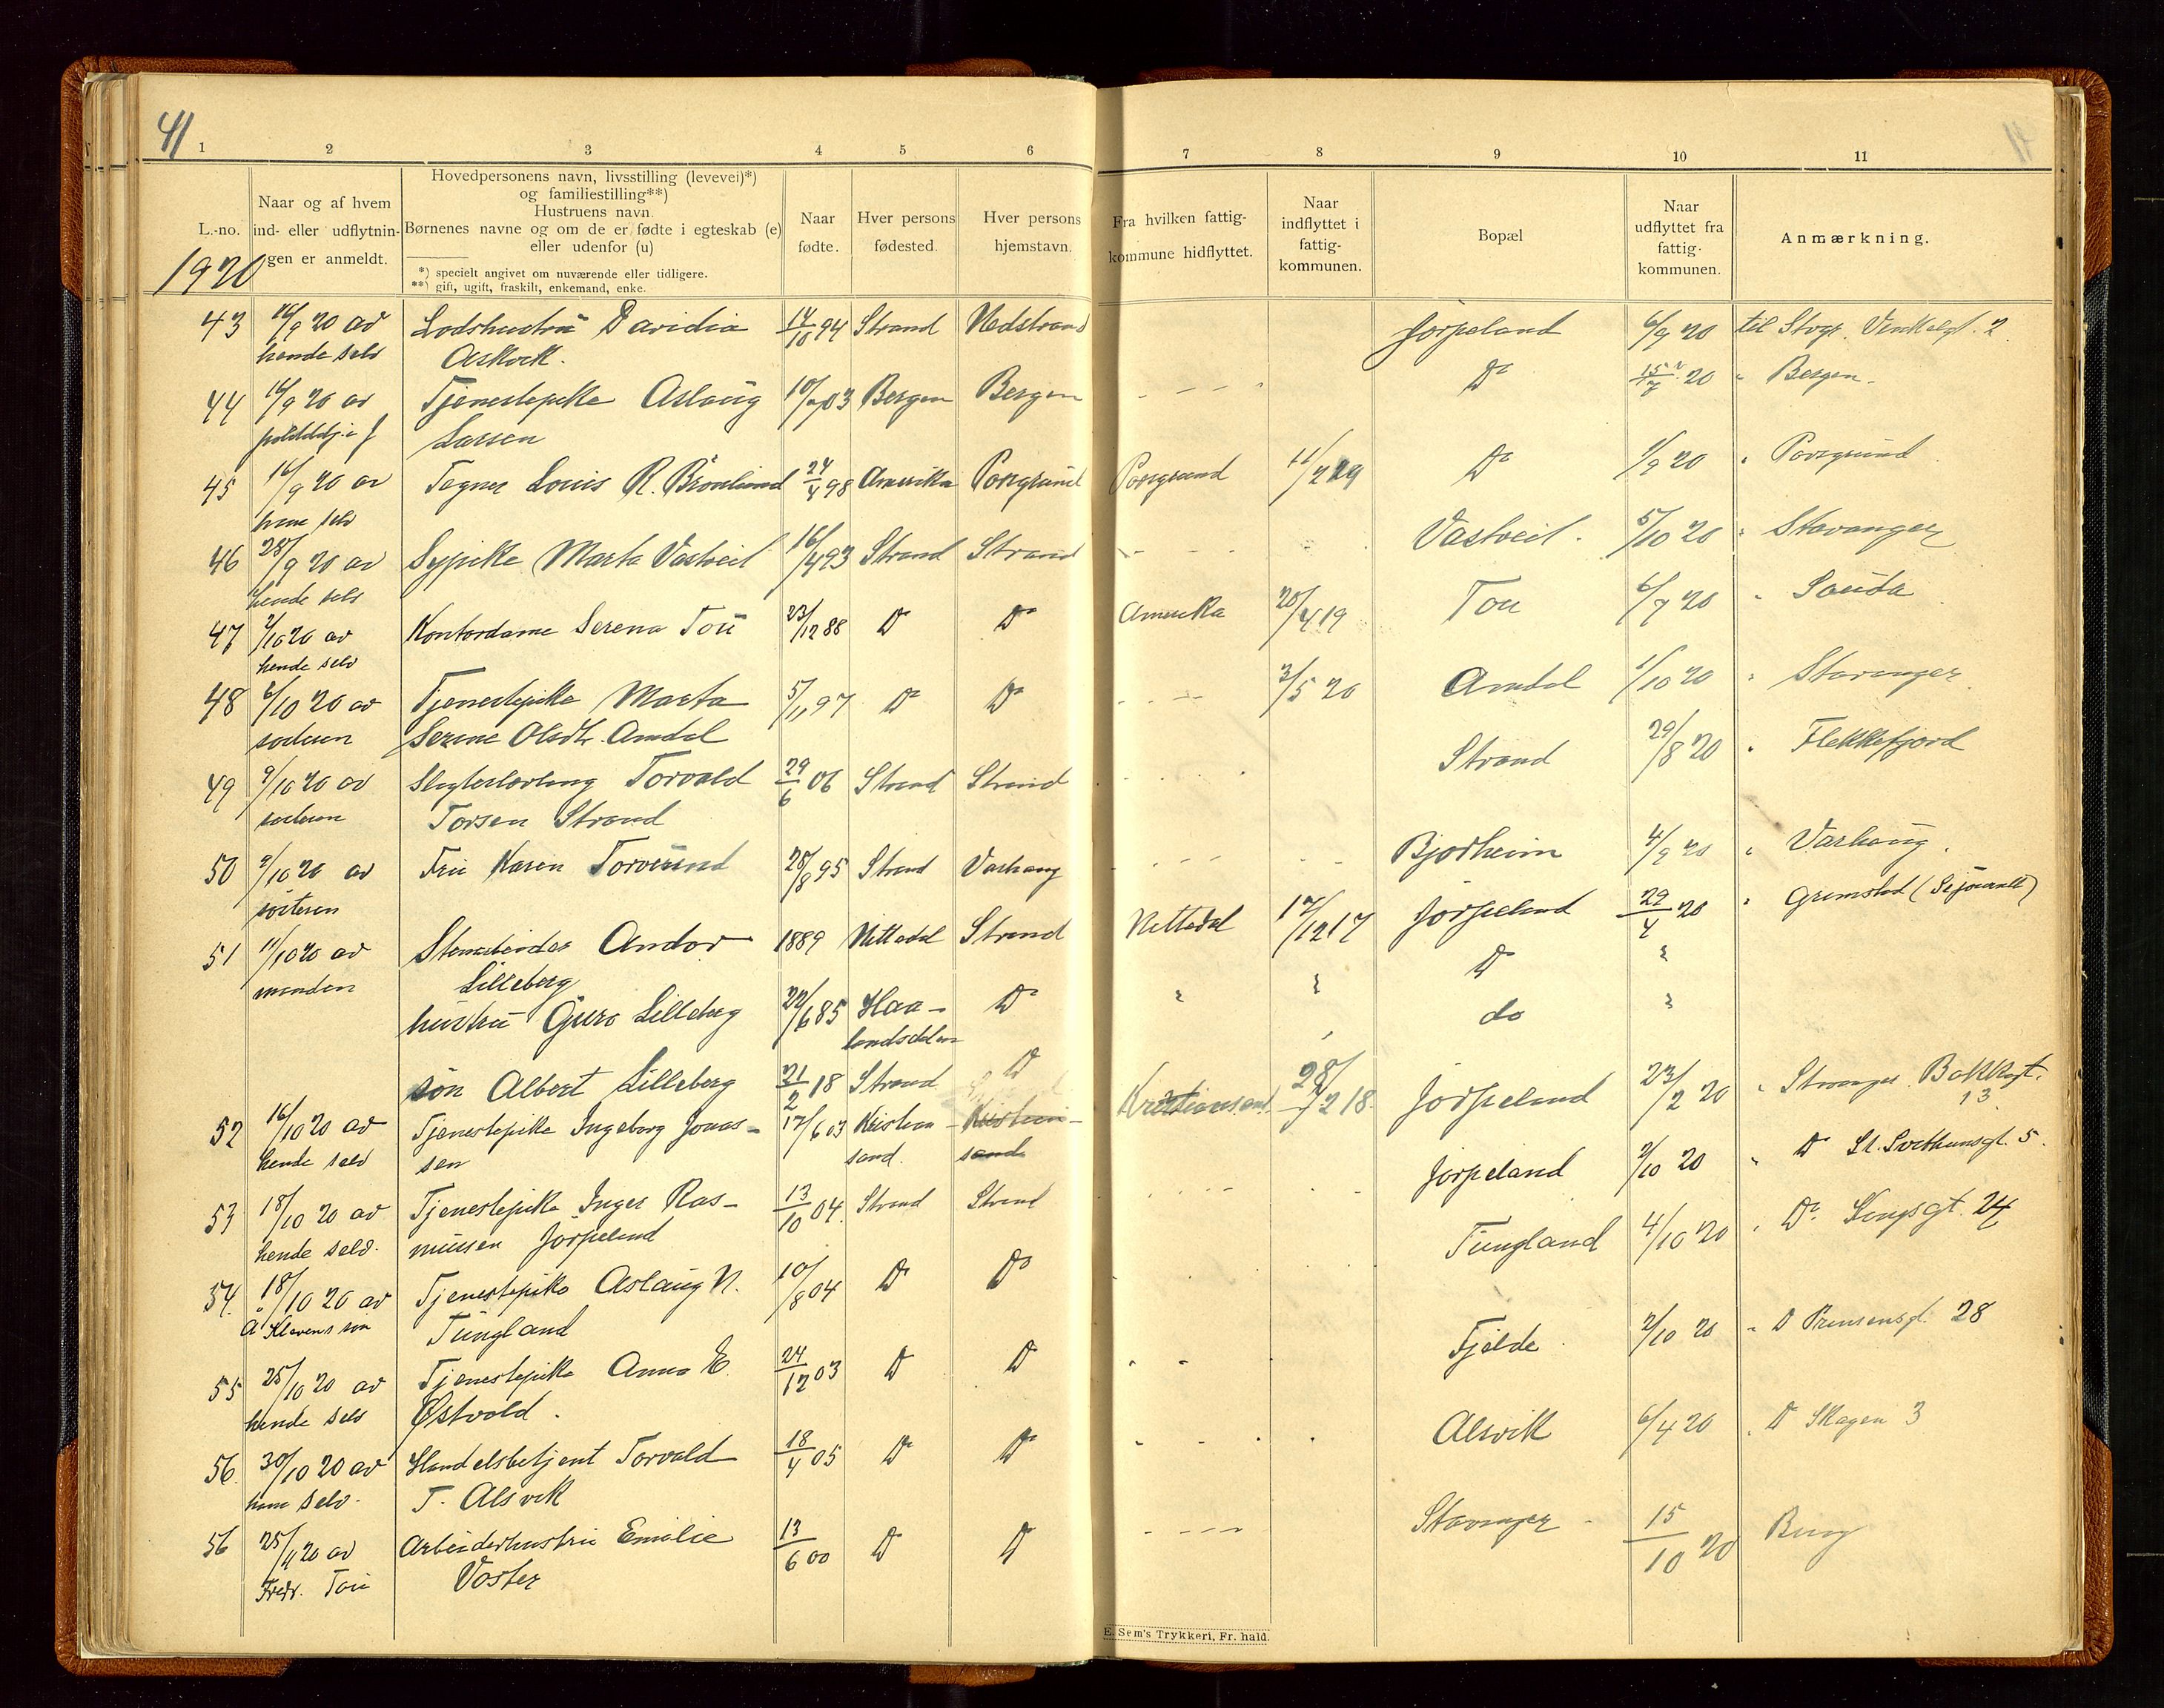 41
1 2 3 4 5 6 7 8 9 10 11
L.-no.
1920
Naar og af hvem
ind- eller udflytnin-
gen er anmeldt.
Hovedpersonens navn, livsstilling (levevei)*)
og familiestilling**)
Hustruens navn.
Børnenes navne og om de er fødte i egteskab (e)
eller udenfor (u)
*) specielt angivet om nuværende eller tidligere.
**) gift, ugift, fraskilt, enkemand, enke.
Naar
fødte.
Hver persons
fødested.
Hver persons
hjemstavn.
Fra hvilken fattig-
kommune hidflyttet.
Naar
indflyttet i
fattig-
kommunen.
Bopæl
Naar
udflyttet fra
fattig-
kommunen.
Anmærkning.
43 16/9 20 av Lodshustrü Davidia 14/10 94 Strand Nedstrand Jørpeland 6/9 20 til Stvgr. Vinkelgt. 2
hende selv Askvik.
44 16/9 20 av Tjenestepike Aslaüg 03 Bergen Bergen - - - Do 15/7 20 " Bergen.
Larsen
45 16/9 20 av Tegner Louis R. Brönlund 24/4 98 Amerika Porsgrund Porsgrund Do 1/9 20 " Porsgrund
ham selv
46 28/9 20 av Sypike Marta Vastveit 16/4 93 Strand Strand - - - Vastveit. 5/10 20 " Stavanger
hende selv
47 2/10 20 av Kontordame Serena Toü 23/12 88 Do Do Amerika 20/4 19 Tou 6/9 20 " Saüda
hende selv
48 6/10 20 av Tjenestepike Marta 5/11 97 Do Do - - - 3/5 20 Amdal 1/10 20 " Stavanger
Serine Olsdtr. Amdal
49 9/10 20 av Torvald 29/6 06 Strand Strand Strand 29/8 20 " Flekkefjord
Torsen Strand
50 9/10 20 av Früe Karen Torvünd 28/8 95 Strand Varhaug - - - Bjørheim 4/9 20 " Varhaüg.
søsteren
51 11/10 20 av Stenarbeider Andor 1889 Nittedal Strand Nittedal 17/12 17 Jørpeland 29/4 20 " Grimstad
manden Lilleberg
hüstrü Güro Lilleberg 22/6 85 Haa- Do " " Do "
landsdalen
søn Albert Lilleberg 21/2 18 Strand Do do "
52 16/10 20 av Tjenestepike Ingeborg Jonas- 17/6 03 Kristian- Kristian- Kristiansand 28/2 18. Jørpeland 23/2 20 " Stavanger Bakkegt.
13
hende selv sen sand. sand
53 18/10 20 av Tjenestepike Inger Ras- 13/10 04. Strand Strand - - - Jørpeland 2/10 20 " Do St. Svithunsgt. 5.
hende selv. müssen Jørpeland
54. 18/10 20 av Tjenestepike Aslaüg N. 10/8 04 Do Do Tüngland 4/10 20 " Do. Kongsgt. 24
Tüngland
55 25/10 20 av Tjenestepike Anna E. 24/12 03 Do Do Fjelde 2/10 20 " Do Prinsensgt. 28
hende selv Østvold.
56. 30/10 20 av Handelsbetjent Torvald 18/4 05 Do Do Alsvik 6/4 20 " Do Skagen 3
ham selv. T. Alsvik
56 25/4 20 av Arbeiderhustrü Emilie 13/6 00 Do Do - - - Stavanger 15/10 20
Fredr. Toü Vaster
E. Sem's Trykkeri, Fr. hald.